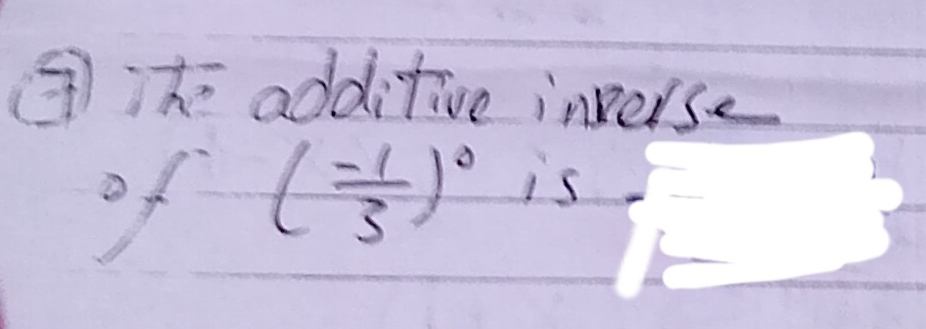 ⑦ The additive inverse
of (-1/3)⁰ is